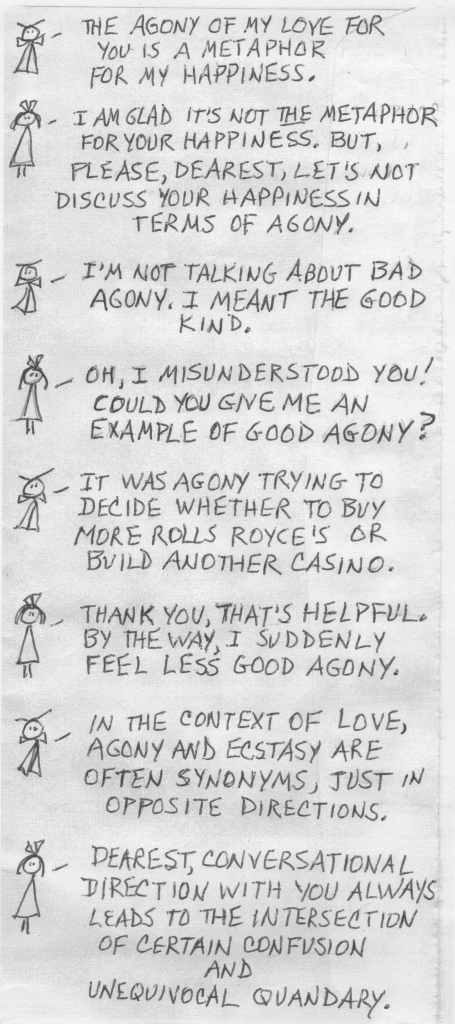 THE AGONY OF MY LOVE FOR
YOU IS A METAPHOR
FOR MY HAPPINESS.
I AM GLAD IT'S NOT THE METAPHOR
FOR YOUR HAPPINESS. BUT,
PLEASE, DEAREST, LET'S NOT
DISCUSS YOUR HAPPINESS IN
TERMS OF AGONY.
I'M NOT TALKING ABOUT BAD
AGONY. I MEANT THE GOOD
KIND.
OH, I MISUNDERSTOOD YOU!
COULD YOU GIVE ME AN
EXAMPLE OF GOOD AGONY?
IT WAS AGONY TRYING TO
DECIDE WHETHER TO BUY
MORE ROLLS ROYCE'S OR
BUILD ANOTHER CASINO.
THANK YOU, THAT'S HELPFUL.
BY THE WAY, I SUDDENLY
FEEL LESS GOOD AGONY.
IN THE CONTEXT OF LOVE,
AGONY AND ECSTASY ARE
OFTEN SYNONYMS, JUST IN
OPPOSITE DIRECTIONS.
DEAREST, CONVERSATIONAL
DIRECTION WITH YOU ALWAYS
LEADS TO THE INTERSECTION
OF CERTAIN CONFUSION
AND
UNEQUIVOCAL QUANDARY.